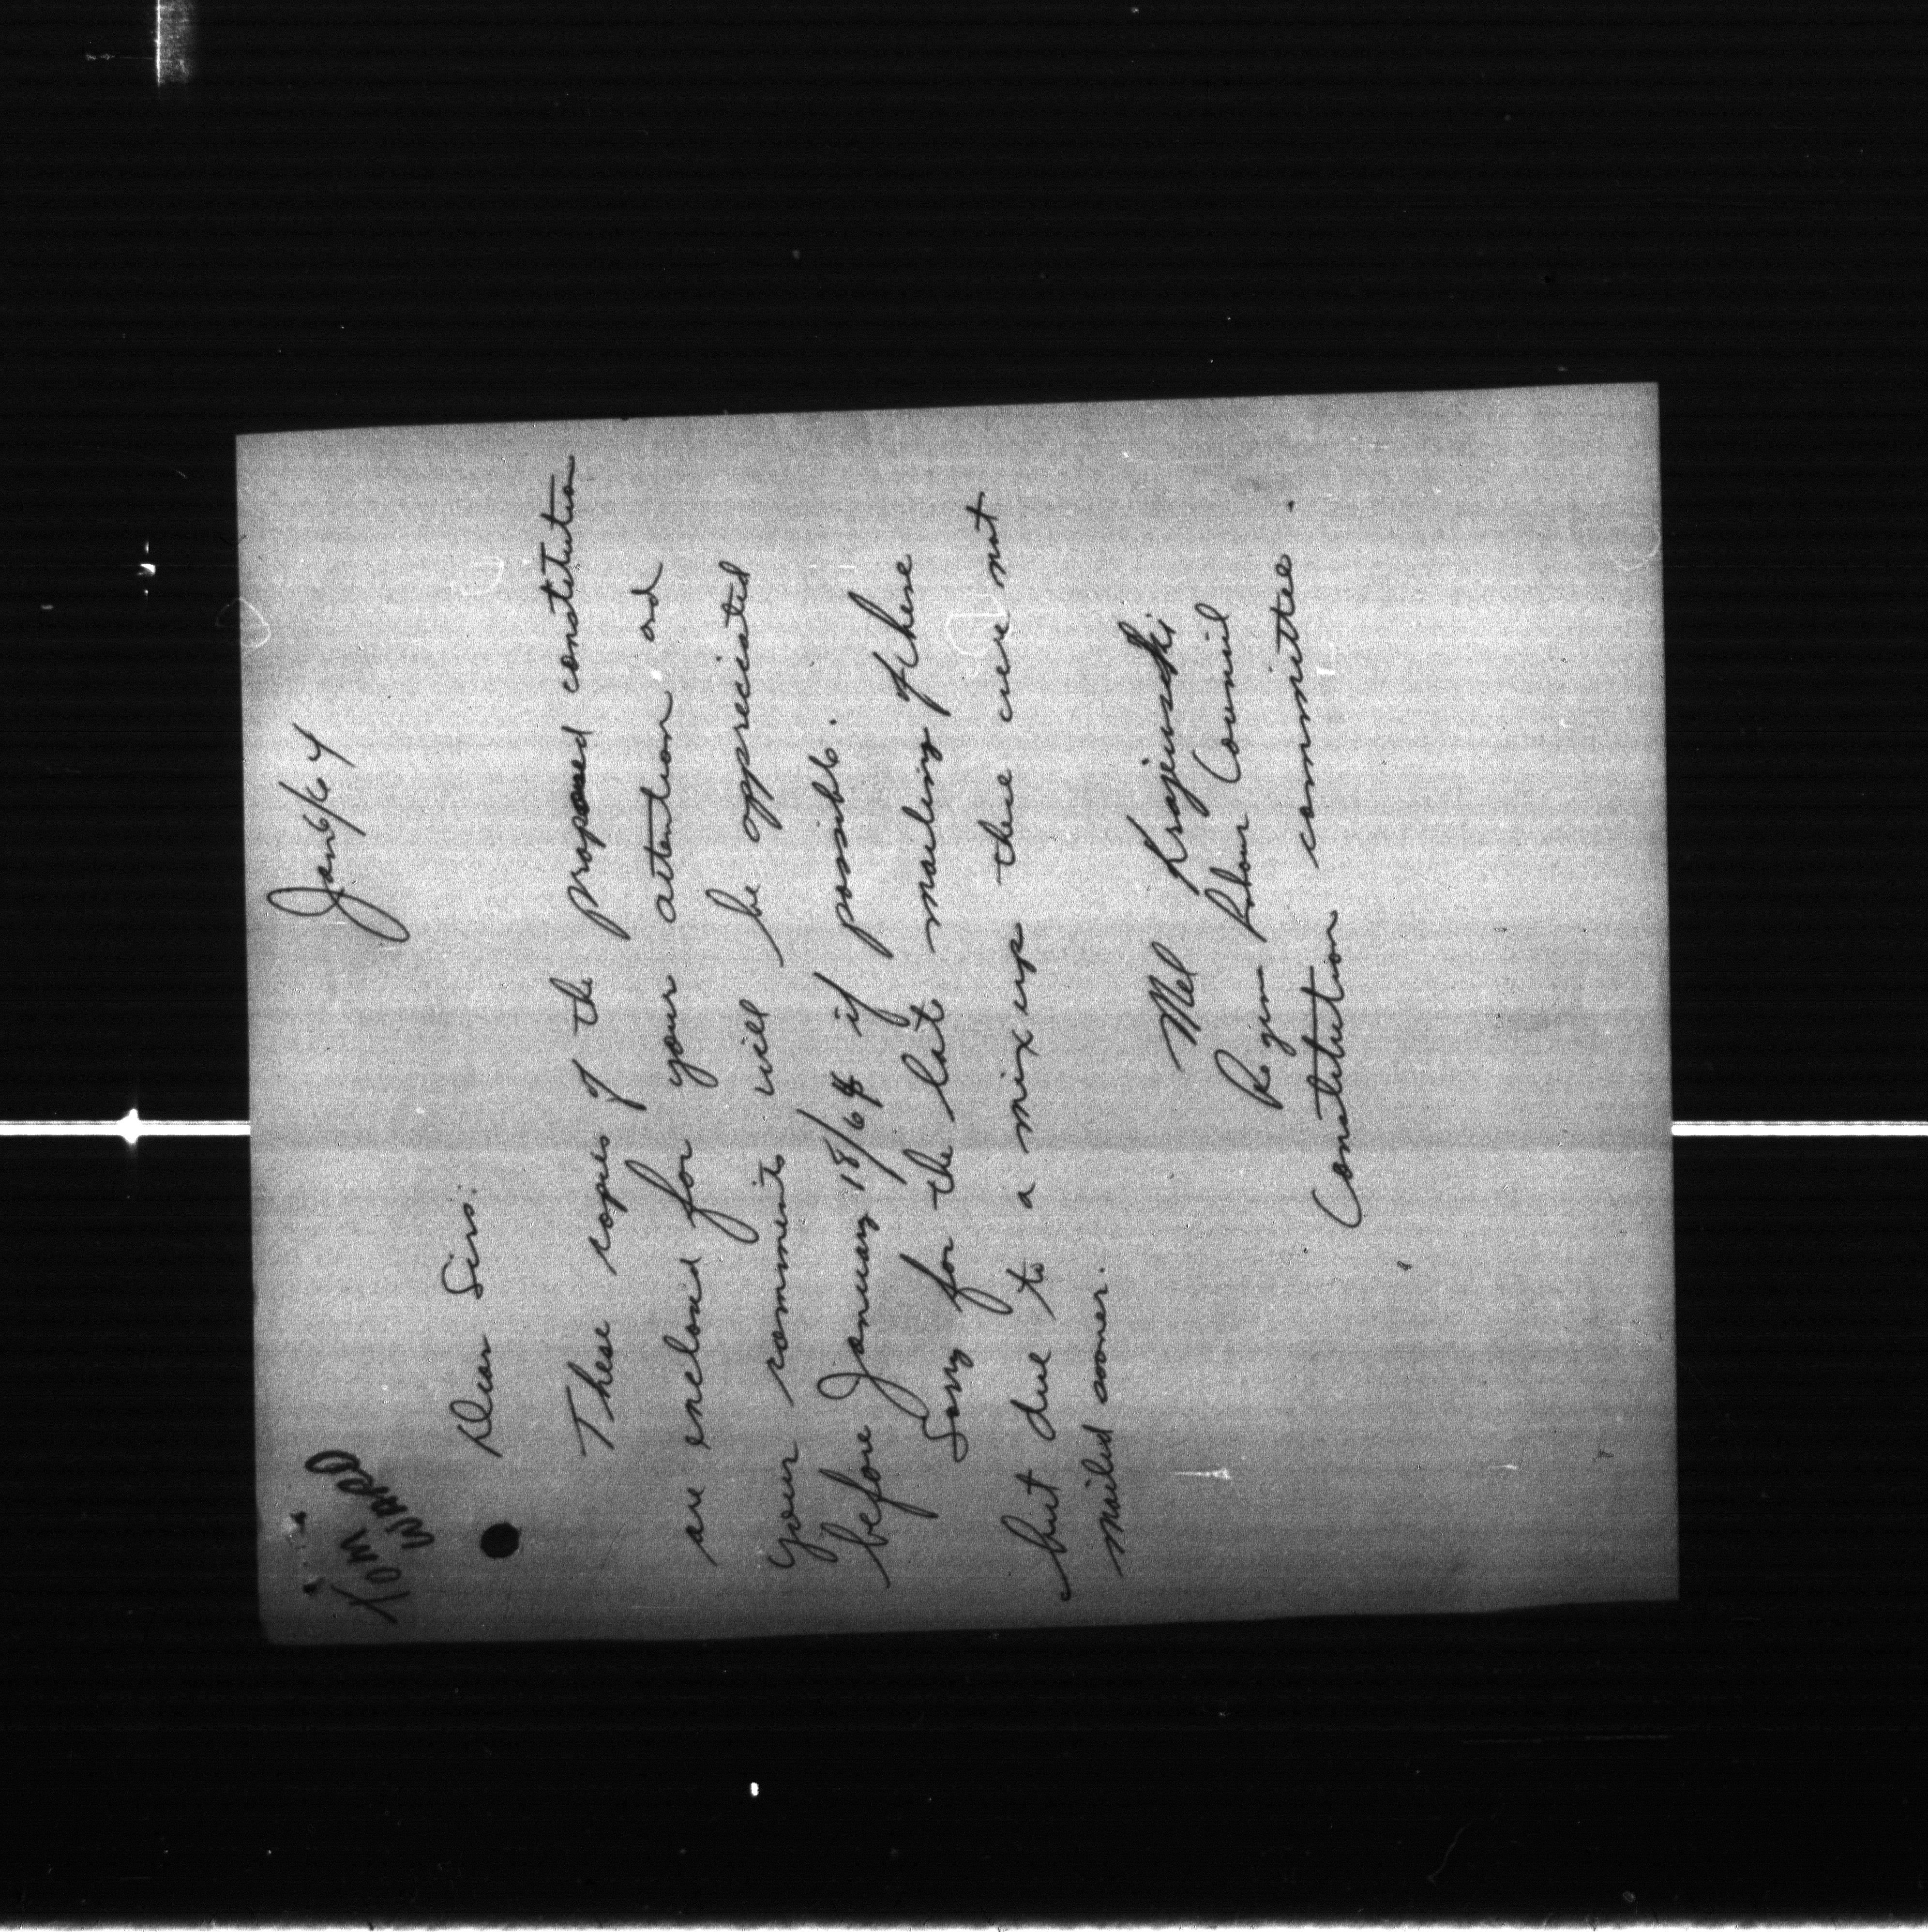 TOM
WARD
Jan 6/64
Dear Sirs:
These copies of the proposed constitution
are enclosed for your attention and
your comments will be appreciated
before January 18/64 if possible.
Sorry for the late mailing of these
but due to a mix up these were not
mailed sooner.
Mel Krajewski
Regina Labour Council
Constitution committee.